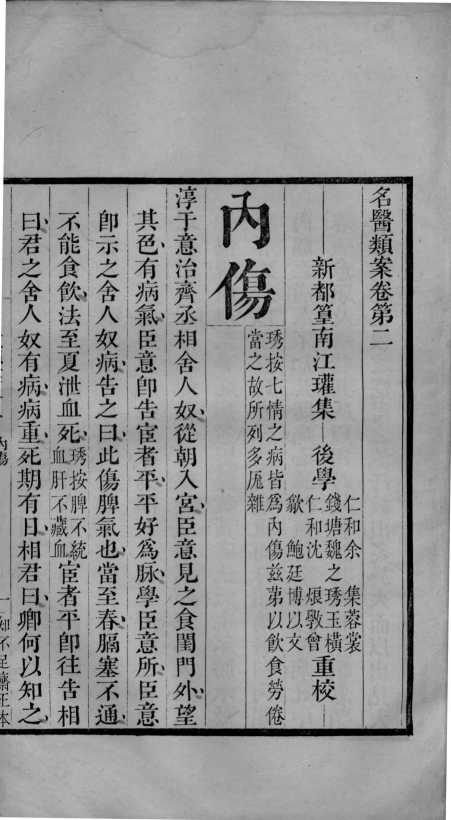 名醫類案卷第二
新都篁南江瓘集
後學
仁和余 集蓉裳
錢塘魏之琇玉橫
仁和沈 烺敦曾
歙 鮑廷博以文
重校
內傷
琇按七情之病皆爲內傷兹苐以飲食勞倦
當之故所列多厖雜
淳于意治齊丞相舍人奴從朝入宮臣意見之食閨門外望
其色有病氣臣意卽告宦者平平好爲脉學臣意所臣意
卽示之舍人奴病告之曰此傷脾氣也當至春膈塞不通
不能食飲法至夏泄血死琇按脾不統
血肝不藏血宦者平卽往告相
曰君之舍人奴有病病重死期有日相君曰卿何以知之
內傷
一
知不足齋正本